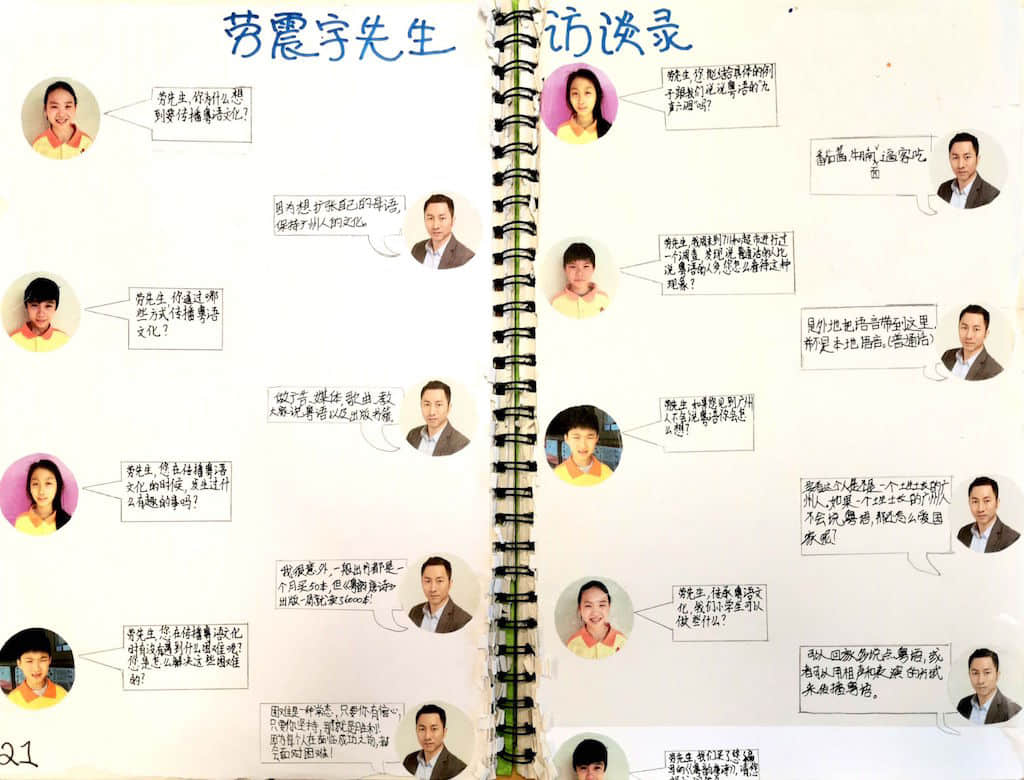 劳震宇先生
劳先生，你为什么想
到要传播粤语文化？
因为想扩张自己的母语，
保持广州人的文化。
劳先生，你通过哪
些方式传播粤语
文化？
做广告、媒体，歌曲，教
大家说粤语以及出版书籍。
劳先生，您在传播粤语
文化的时候，发生过什
么有趣的事吗？
我很意外，一般出书都是一
个月买50本，但《粤韵唐诗》
出版一周就卖36000本！
劳先生，您在传播粤语文化
时有没有遇到什么困难呢？
您是怎么解决这些困难
的？
困难是一种常态，只要你有信心，
只要你坚持，那就是胜利！
因为每个人在面临成功之前，都
会面对困难！
21
访谈录
劳先生，您能结合具体的例
子跟我们说说粤语的“九
声六调”吗？
番茄酱，牛腩，逼家吃
面
劳先生，我周末到711和超市进行过
一个调查，发现说普通话的人比
说粤语的人多，您怎么看待这种
现象？
是外地把语言带到这里，
都不是本地语言。（普通话）
劳先生，如果您见到广州
人不会说粤语你会怎
么想？
要看这个人是不是一个土生土长的广
州人。如果一个土生土长的广州人
不会说粤语，那还怎么爱国
家呢？
劳先生，传承粤语文
化，我们小学生可以
做些什么？
可以回家多说点粤语，或
者可以用相声和表演的方式
来传播粤语。
劳先生，我们买了您编
写的《粤韵唐诗》，请您